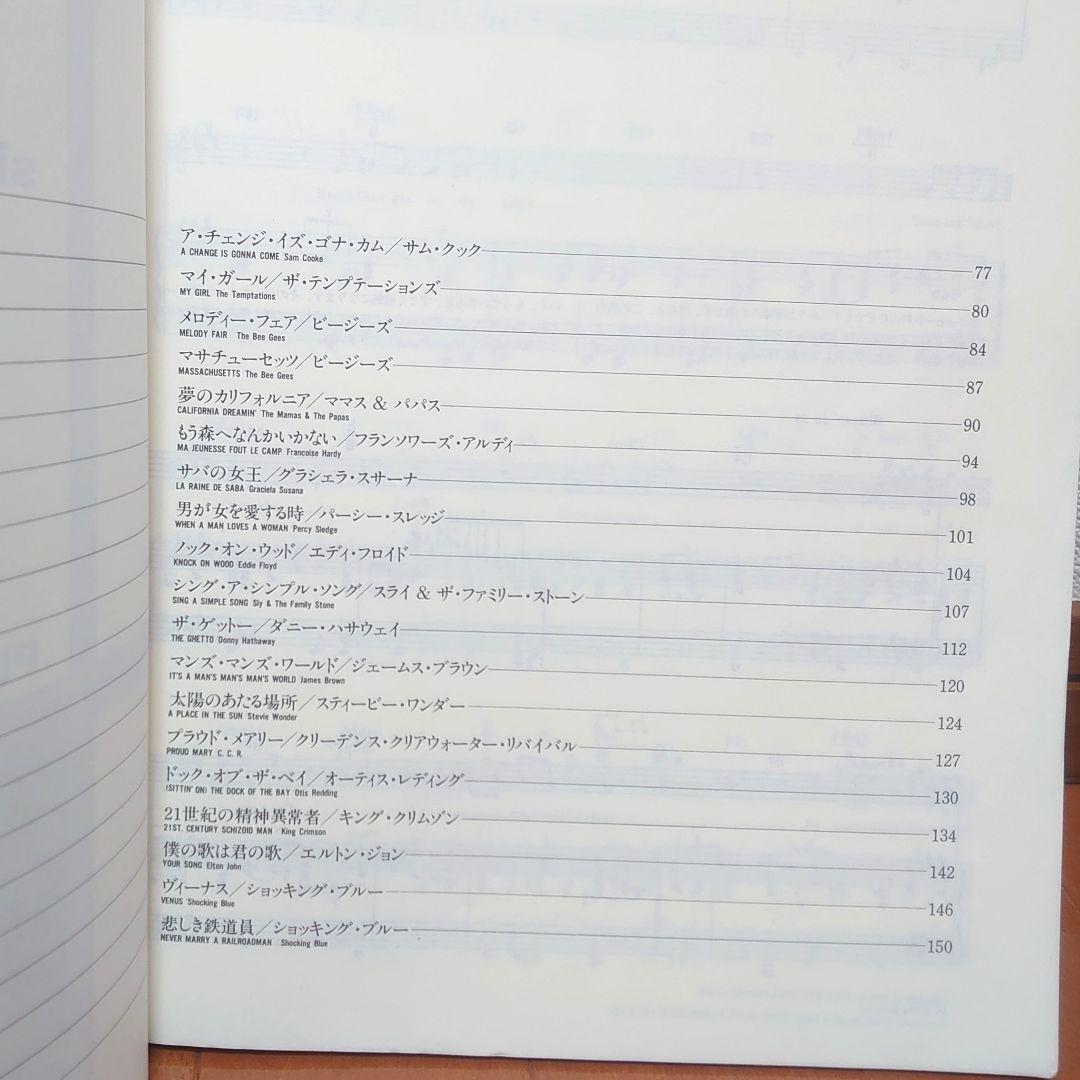 ア・チェンジ・イズ・ゴナ・カム／サム・クック 77
A CHANGE IS GONNA COME Sam Cooke
マイ・ガール／ザ・テンプテーションズ 80
MY GIRL The Temptations
メロディー・フェア／ビージーズ 84
MELODY FAIR The Bee Gees
マサチューセッツ／ビージーズ 87
MASSACHUSETTS The Bee Gees
夢のカリフォルニア／ママス & パパス 90
CALIFORNIA DREAMIN' The Mamas & The Papas
もう森へなんかいかない／フランソワーズ・アルディ 94
MA JEUNESSE FOUT LE CAMP Francoise Hardy
サバの女王／グラシェラ・スサーナ 98
LA RAINE DE SABA Graciela Susana
男が女を愛する時／パーシー・スレッジ 101
WHEN A MAN LOVES A WOMAN Percy Sledge
ノック・オン・ウッド／エディ・フロイド 104
KNOCK ON WOOD Eddie Floyd
シング・ア・シンプル・ソング／スライ & ザ・ファミリー・ストーン 107
SING A SIMPLE SONG Sly & The Family Stone
ザ・ゲットー／ダニー・ハサウェイ 112
THE GHETTO Donny Hathaway
マンズ・マンズ・ワールド／ジェームス・ブラウン 120
IT'S A MAN'S MAN'S MAN'S WORLD James Brown
太陽のあたる場所／スティービー・ワンダー 124
A PLACE IN THE SUN Stevie Wonder
プラウド・メアリー／クリーデンス・クリアウォーター・リバイバル 127
PROUD MARY C. C. R.
ドック・オブ・ザ・ベイ／オーティス・レディング 130
(SITTIN' ON) THE DOCK OF THE BAY Otis Redding
21世紀の精神異常者／キング・クリムゾン 134
21ST. CENTURY SCHIZOID MAN King Crimson
僕の歌は君の歌／エルトン・ジョン 142
YOUR SONG Elton John
ヴィーナス／ショッキング・ブルー 146
VENUS Shocking Blue
悲しき鉄道員／ショッキング・ブルー 150
NEVER MARRY A RAILROADMAN Shocking Blue